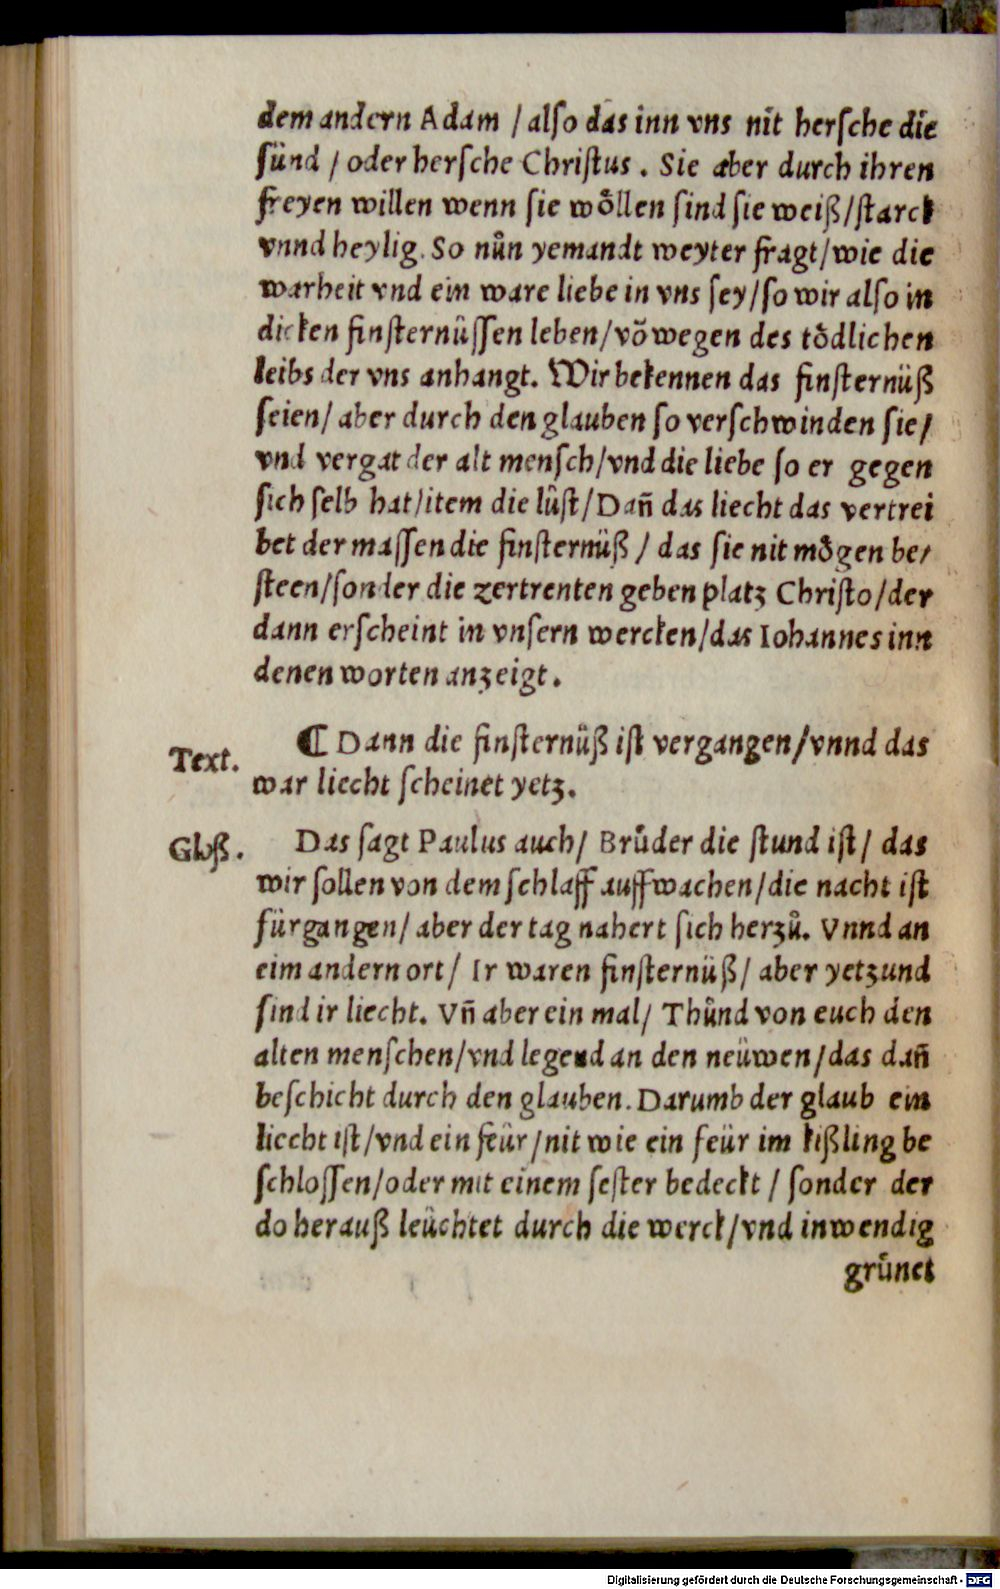 dem andern Adam / alſo das inn vns nit herſche die
ſünd / oder herſche Chriſtus . Sie aber durch ihren
freyen willen wenn ſie woͤllen ſind ſie weiß/ſtarck
vnnd heylig. So nuͤn yemandt weyter fragt/wie die
warheit vnd ein ware liebe in vns ſey/ſo wir alſo in
dicken finſternuͤſſen leben/võ wegen des toͤdlichen
leibs der vns anhangt. Wir bekennen das finſternüß
ſeien/ aber durch den glauben ſo verſchwinden ſie/
vnd vergat der alt menſch/vnd die liebe ſo er gegen
ſich ſelb hat/item die luͤſt/Dañ das liecht das vertrei
bet der maſſen die finſternüß / das ſie nit moͤgen be⸗
ſteen/ſonder die zertrenten geben platz Chriſto/der
dann erſcheint in vnſern wercken/das Iohannes inn
denen worten anzeigt.
Text.
¶ Dann die finſternuͤß iſt vergangen/vnnd das
war liecht ſcheinet yetz.
Gloß.
Das ſagt Paulus auch/ Bruͤder die ſtund iſt/ das
wir ſollen von dem ſchlaff auffwachen/die nacht iſt
fürgangen/ aber der tag nahert ſich herzů. Vnnd an
eim andern ort/ Ir waren finſternüß/ aber yetzund
ſind ir liecht. Vñ aber ein mal/ Thůnd von euch den
alten menſchen/vnd legend an den neüwen/das dañ
beſchicht durch den glauben. Darumb der glaub ein
liecht iſt/vnd ein feür/nit wie ein feür im kißling be
ſchloſſen/oder mit einem ſeſter bedeckt / ſonder der
do herauß leüchtet durch die werck/vnd inwendig
gruͤnet
Digitalisierung gefördert durch die Deutsche Forschungsgemeinschaft - DFG